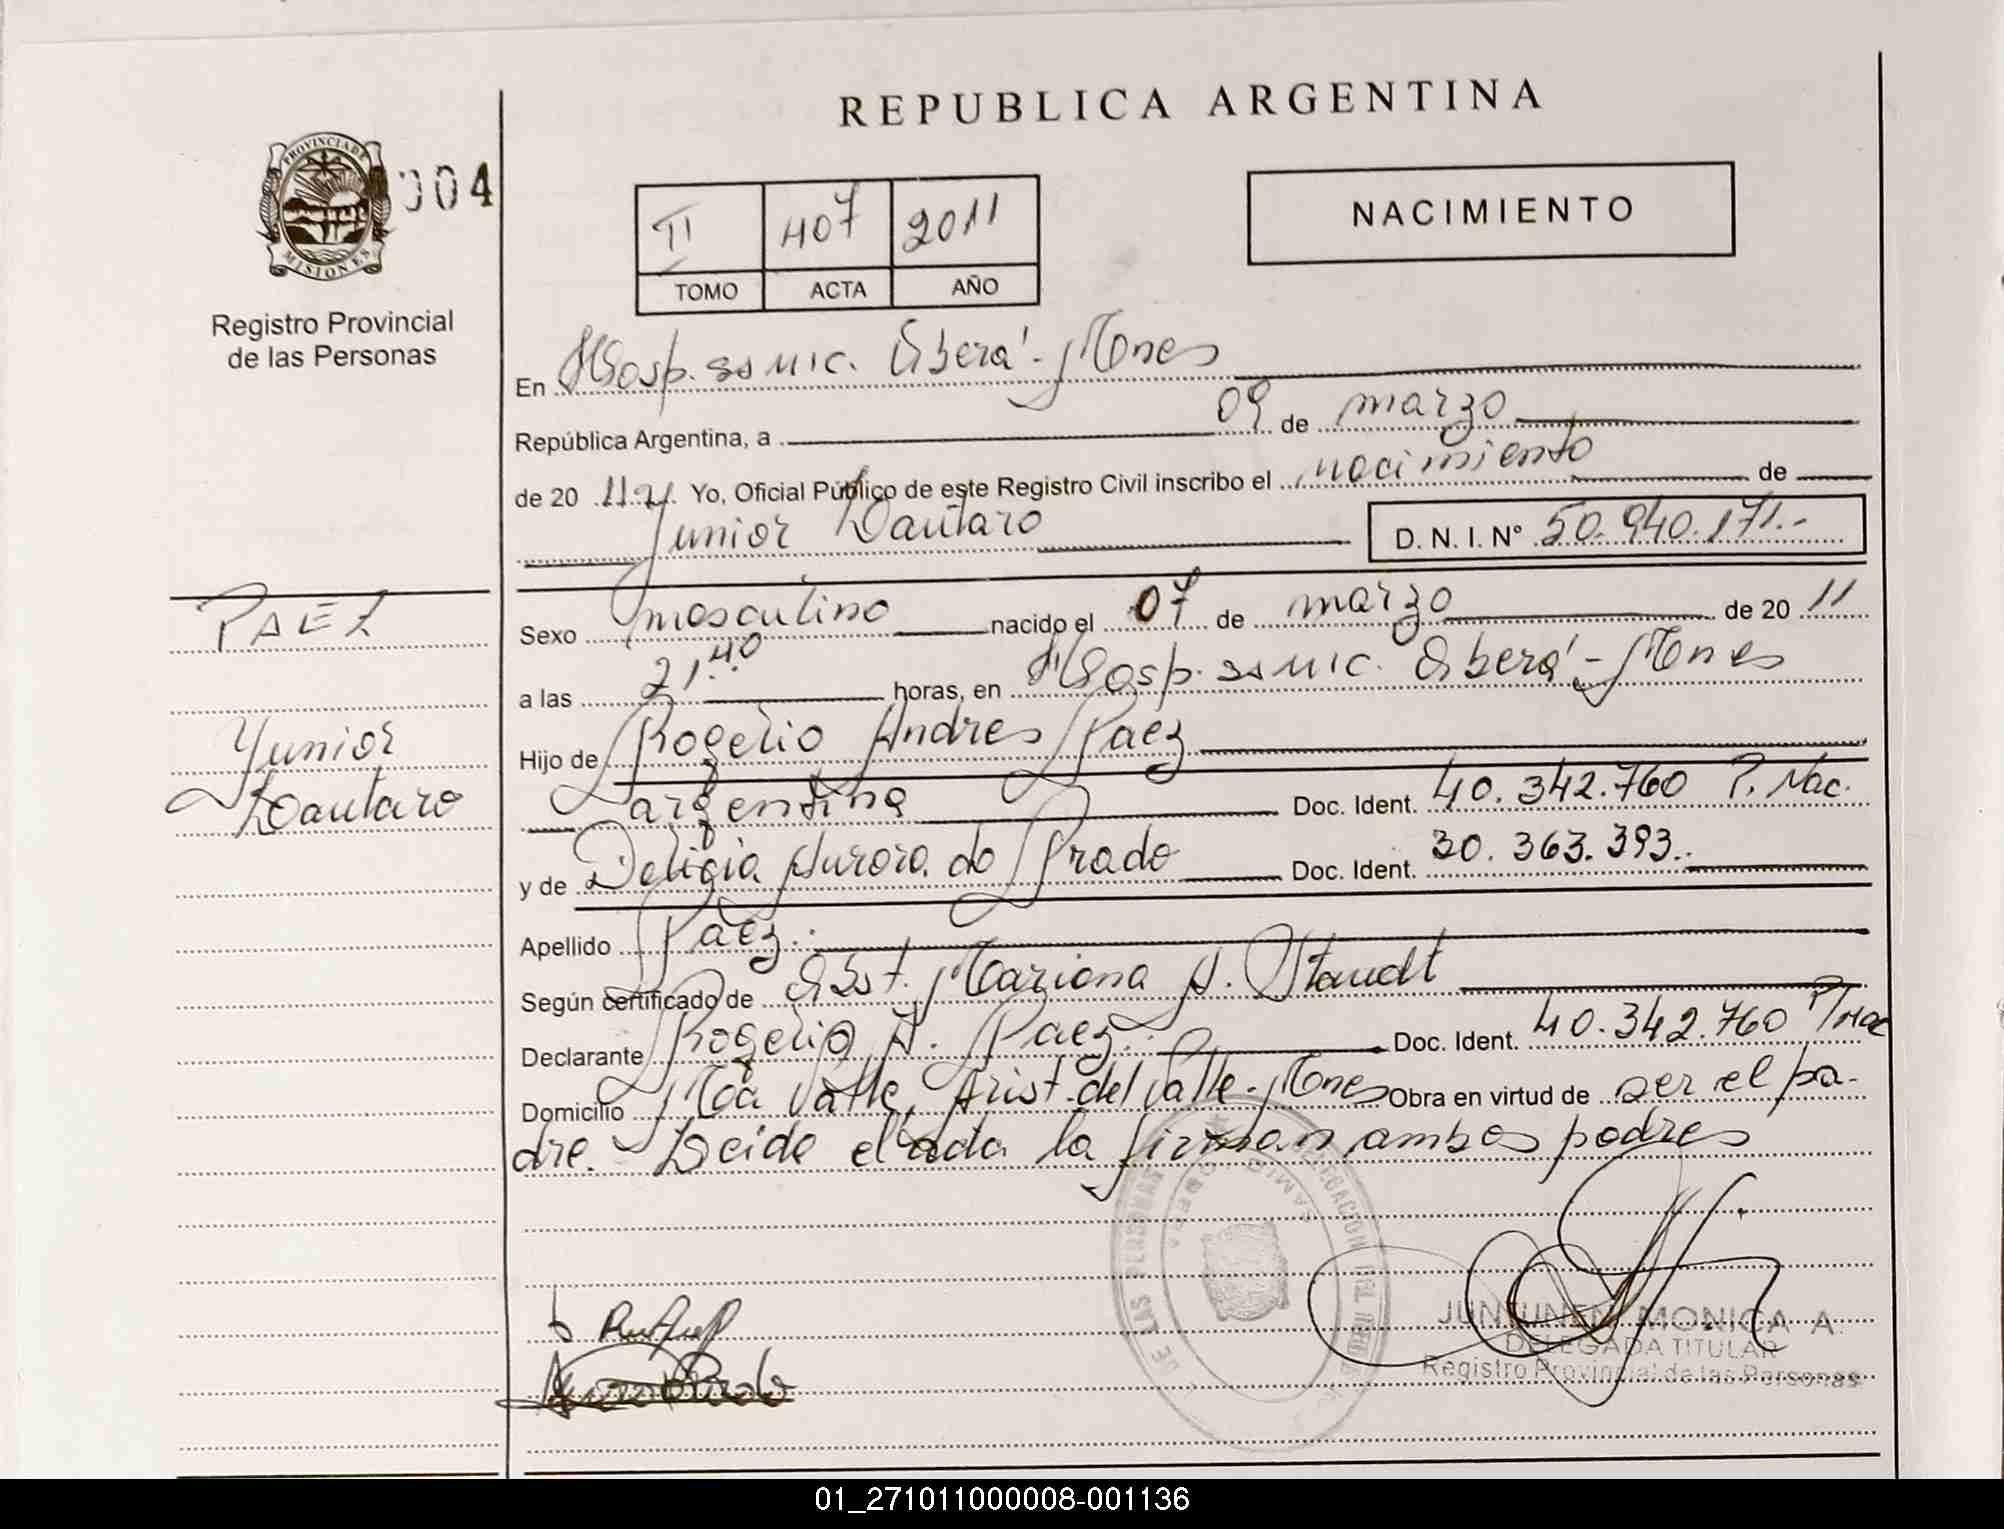 REPUBLICA ARGENTINA
PROVINCIA DE MISIONES
004
Registro Provincial
de las Personas
II 407 2011
TOMO ACTA AÑO
NACIMIENTO
En Hosp. ss Mic. Oberá - Mones
República Argentina, a 09 de marzo
de 20 11.- Yo, Oficial Público de este Registro Civil inscribo el nacimiento de
Yunior Lautaro D. N. I. Nº 50.940.171.-
PAEZ
Yunior
Lautaro
Sexo masculino nacido el 07 de marzo de 20 11
a las 21.40 horas, en Hosp. ss Mic. Oberá - Mones
Hijo de Rogelio Andres Paez
argentina Doc. Ident. 40.342.760 P. Nac.
y de Deligia Aurora do Prado Doc. Ident. 30.363.393.-
Apellido Paez.-
Según certificado de Obst. Mariana A. Staudt
Declarante Rogelio A. Paez.- Doc. Ident. 40.342.760 P/Nac
Domicilio Moa Valle, Arist. del Valle - Mones Obra en virtud de ser el pa-
dre. Leida el acta la firman ambos padres
DELEGACION
DE LAS PERSONAS
JUNTUNEN MONICA A.
DELEGADA TITULAR
Registro Provincial de las Personas
01_271011000008-001136